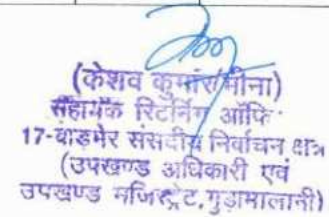 (केशव कुमार मीना)
सहायक रिटर्निंग ऑफि
17-बाड़मेर संसदीय निर्वाचन क्षेत्र
(उपखण्ड अधिकारी एवं
उपखण्ड मजिस्ट्रेट,गुड़ामालानी)